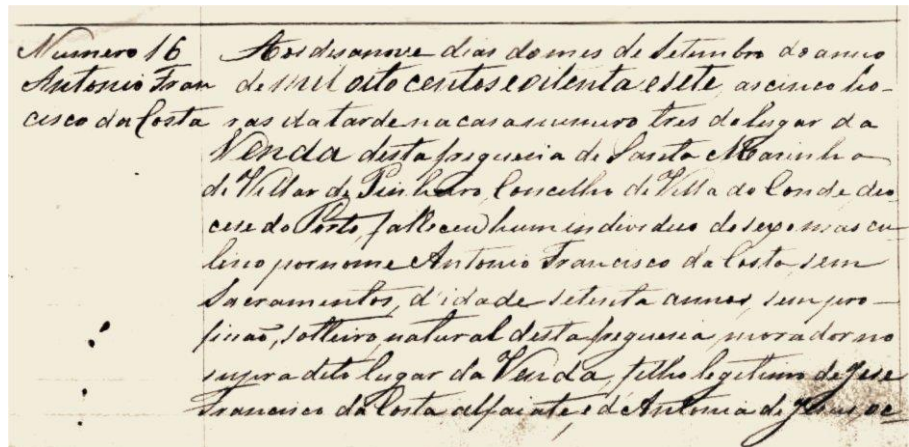 Numero 16 Aos desanove dias do mes de Setembro do anno
Antonio Fran de mil oito centos e oitenta e sete, as cinco ho-
cisco da Costa ras da tarde na casa numero tres do lugar da
Venda desta freguesia de Santa Marinha
de Villar de Pinheiro, Concelho de Villa do Conde, dio
cese do Porto, falleceu hum individuo do sexo mascu
lino por nome Antonio Francisco da Costa, sem
Sacramentos, d'idade setenta annos, sem pro-
ficaõ, solteiro, natural desta freguesia, morador no
supra dito lugar da Venda, filho legitimo de Jose
Francisco da Costa alfaiate, e de Antonia de Jesus, oc